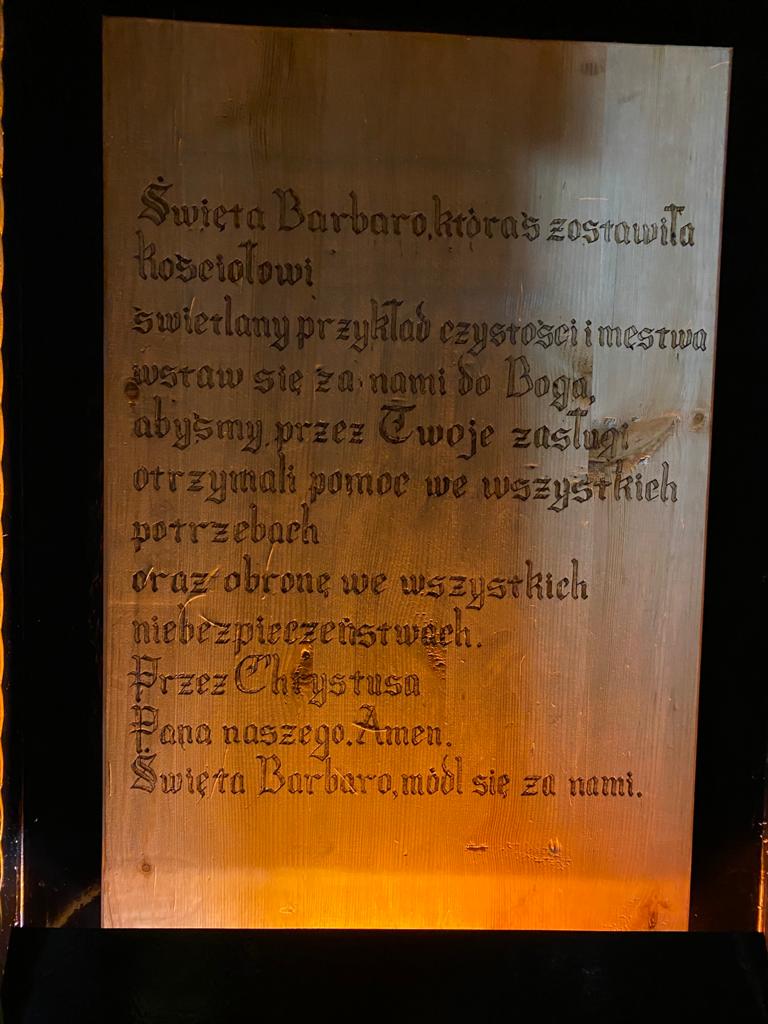 Święta Barbaro, któraś zostawiła
Kościołowi
świetlany przykład czystości i męstwa
wstaw się za nami do Boga,
abyśmy przez Twoje zasługi
otrzymali pomoc we wszystkich
potrzebach
oraz obronę we wszystkich
niebezpieczeństwach.
Przez Chrystusa
Pana naszego. Amen.
Święta Barbaro, módl się za nami.